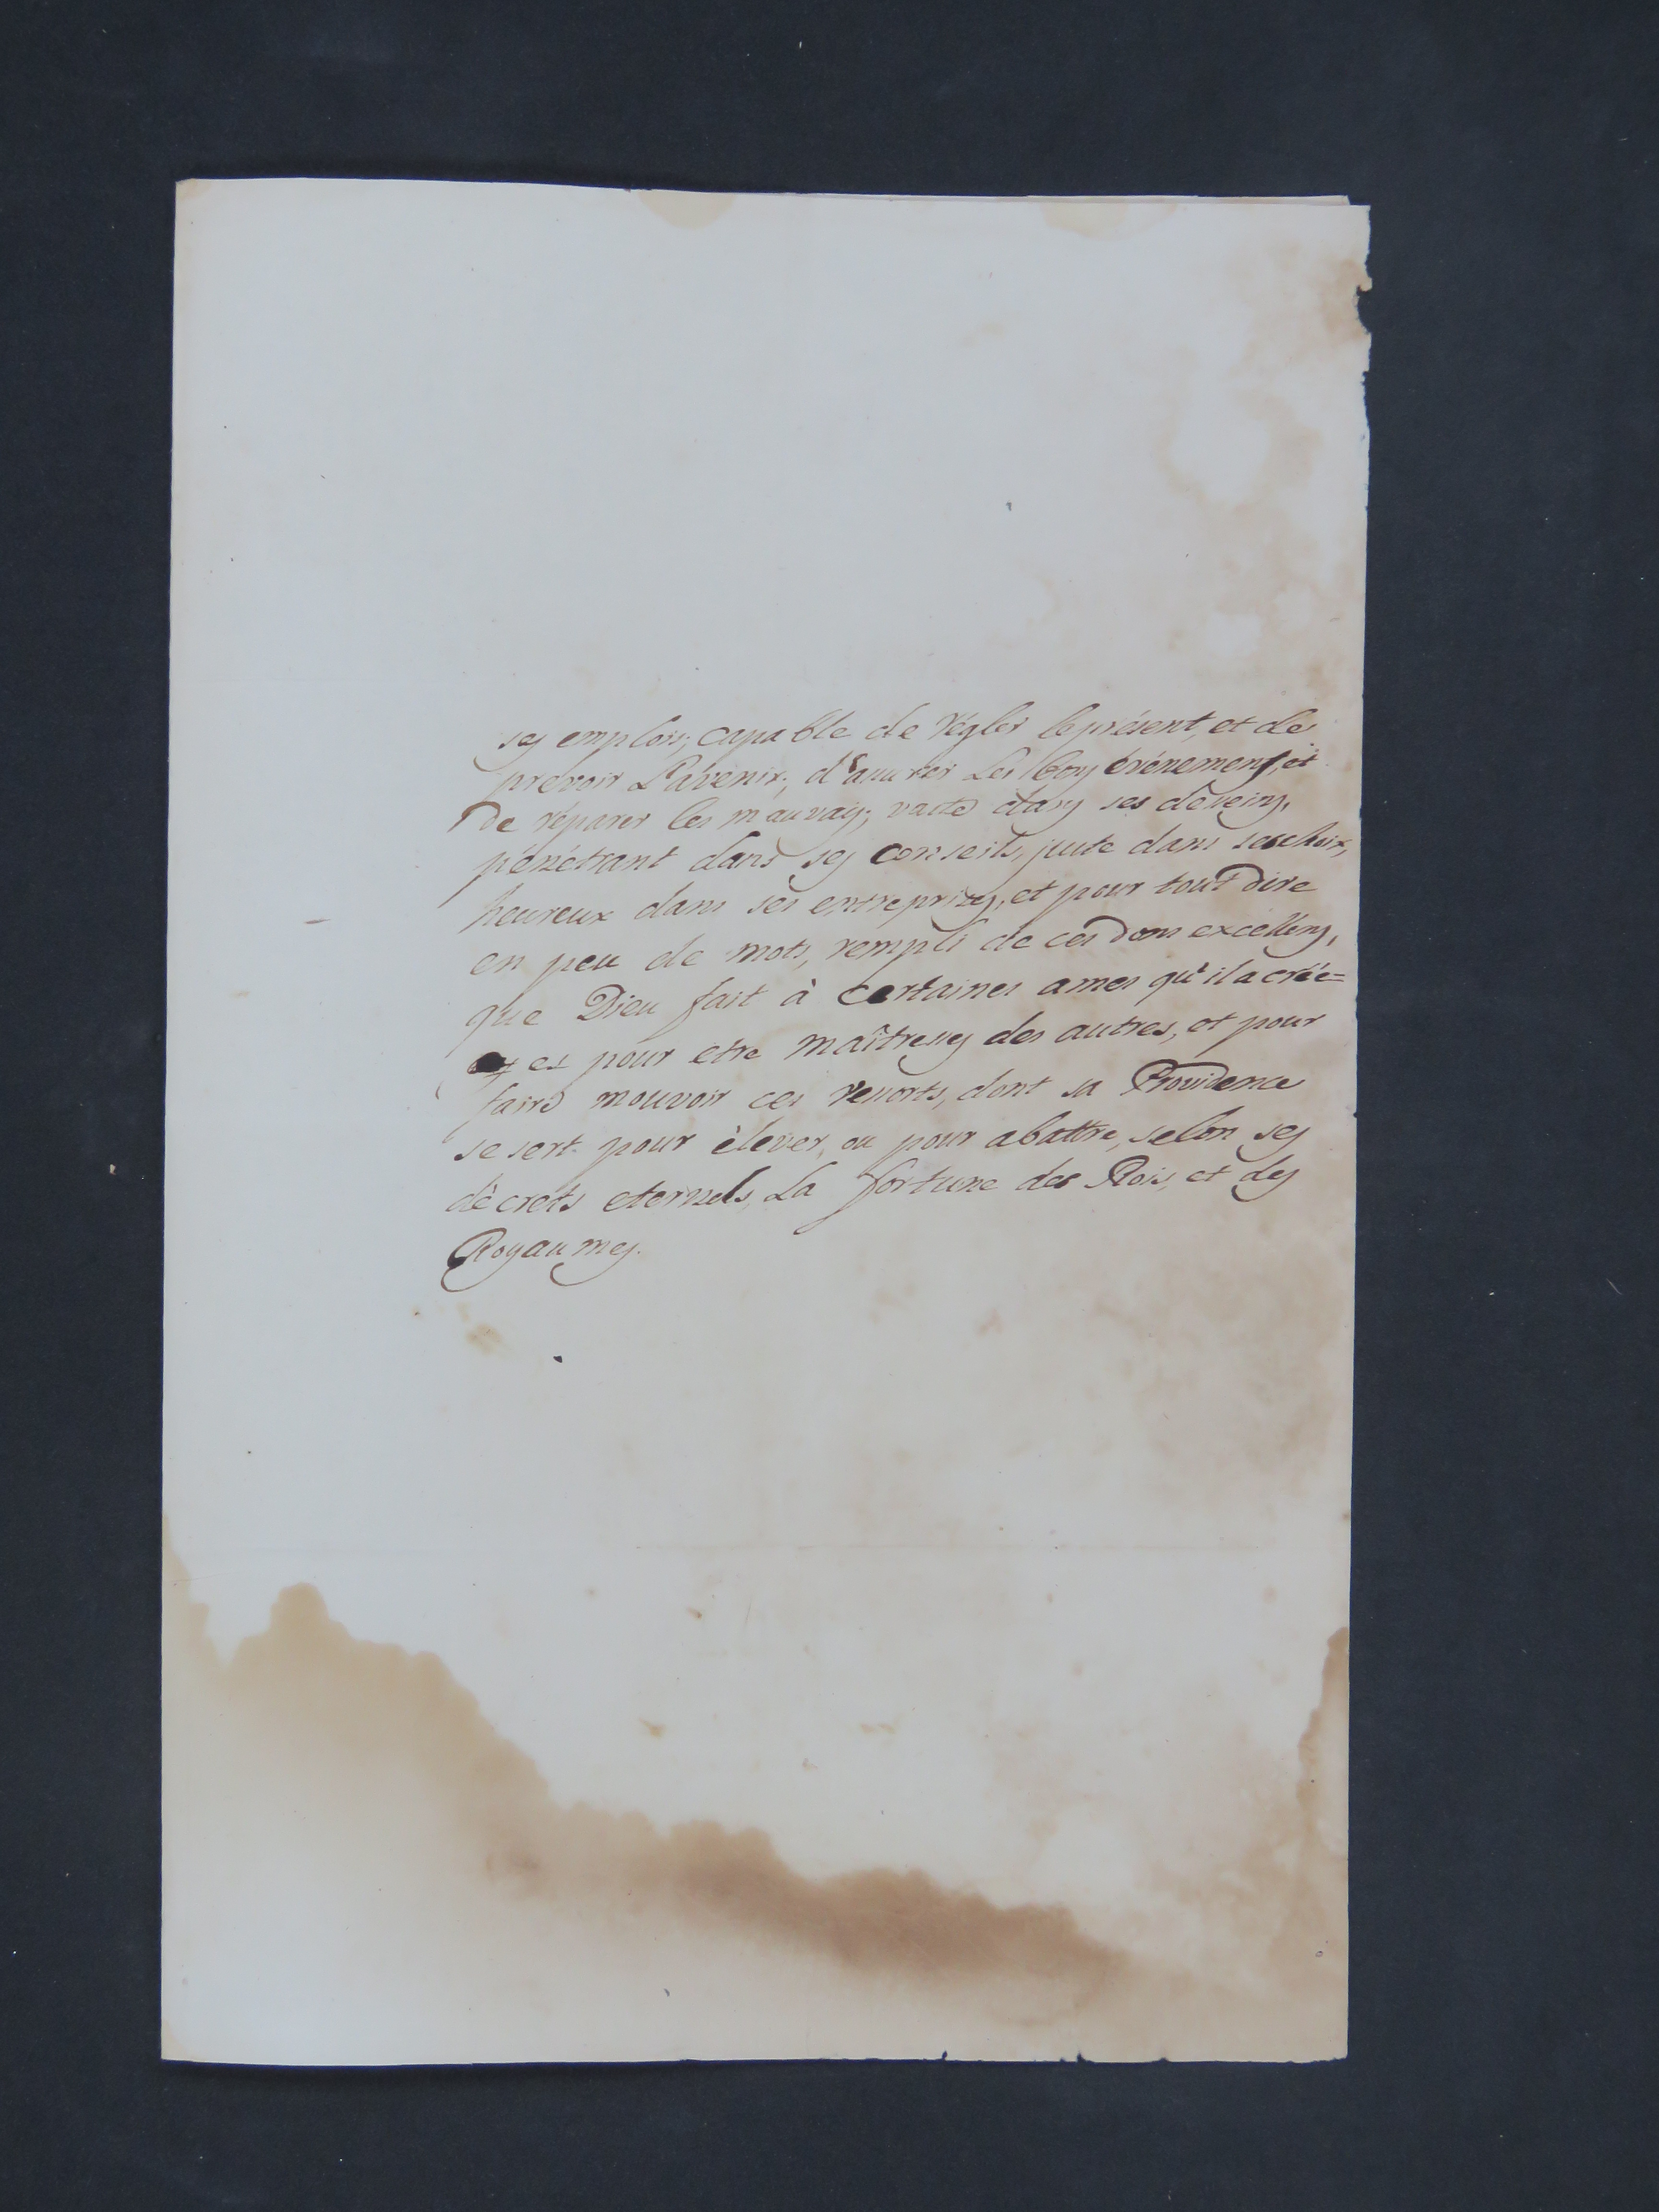 ses emplois; capable de régler le présent, et de
prevoir L'avenir; d'assurer Les bons événemens, et
de réparer les mauvais; vaste dans ses desseins,
pénétrant dans ses conseils, juste dans ses choix,
heureux dans ses entreprizes, et pour tout dire
en peu de mots, rempli de ces dons excellens,
que Dieu fait à certaines ames qu'il a créé=
es pour etre maîtresses des autres, et pour
faire mouvoir ces ressorts, dont sa Providence
se sert pour èlever, ou pour abattre, selon ses
dècrets eternels, La fortune des Rois, et des
Royaumes.